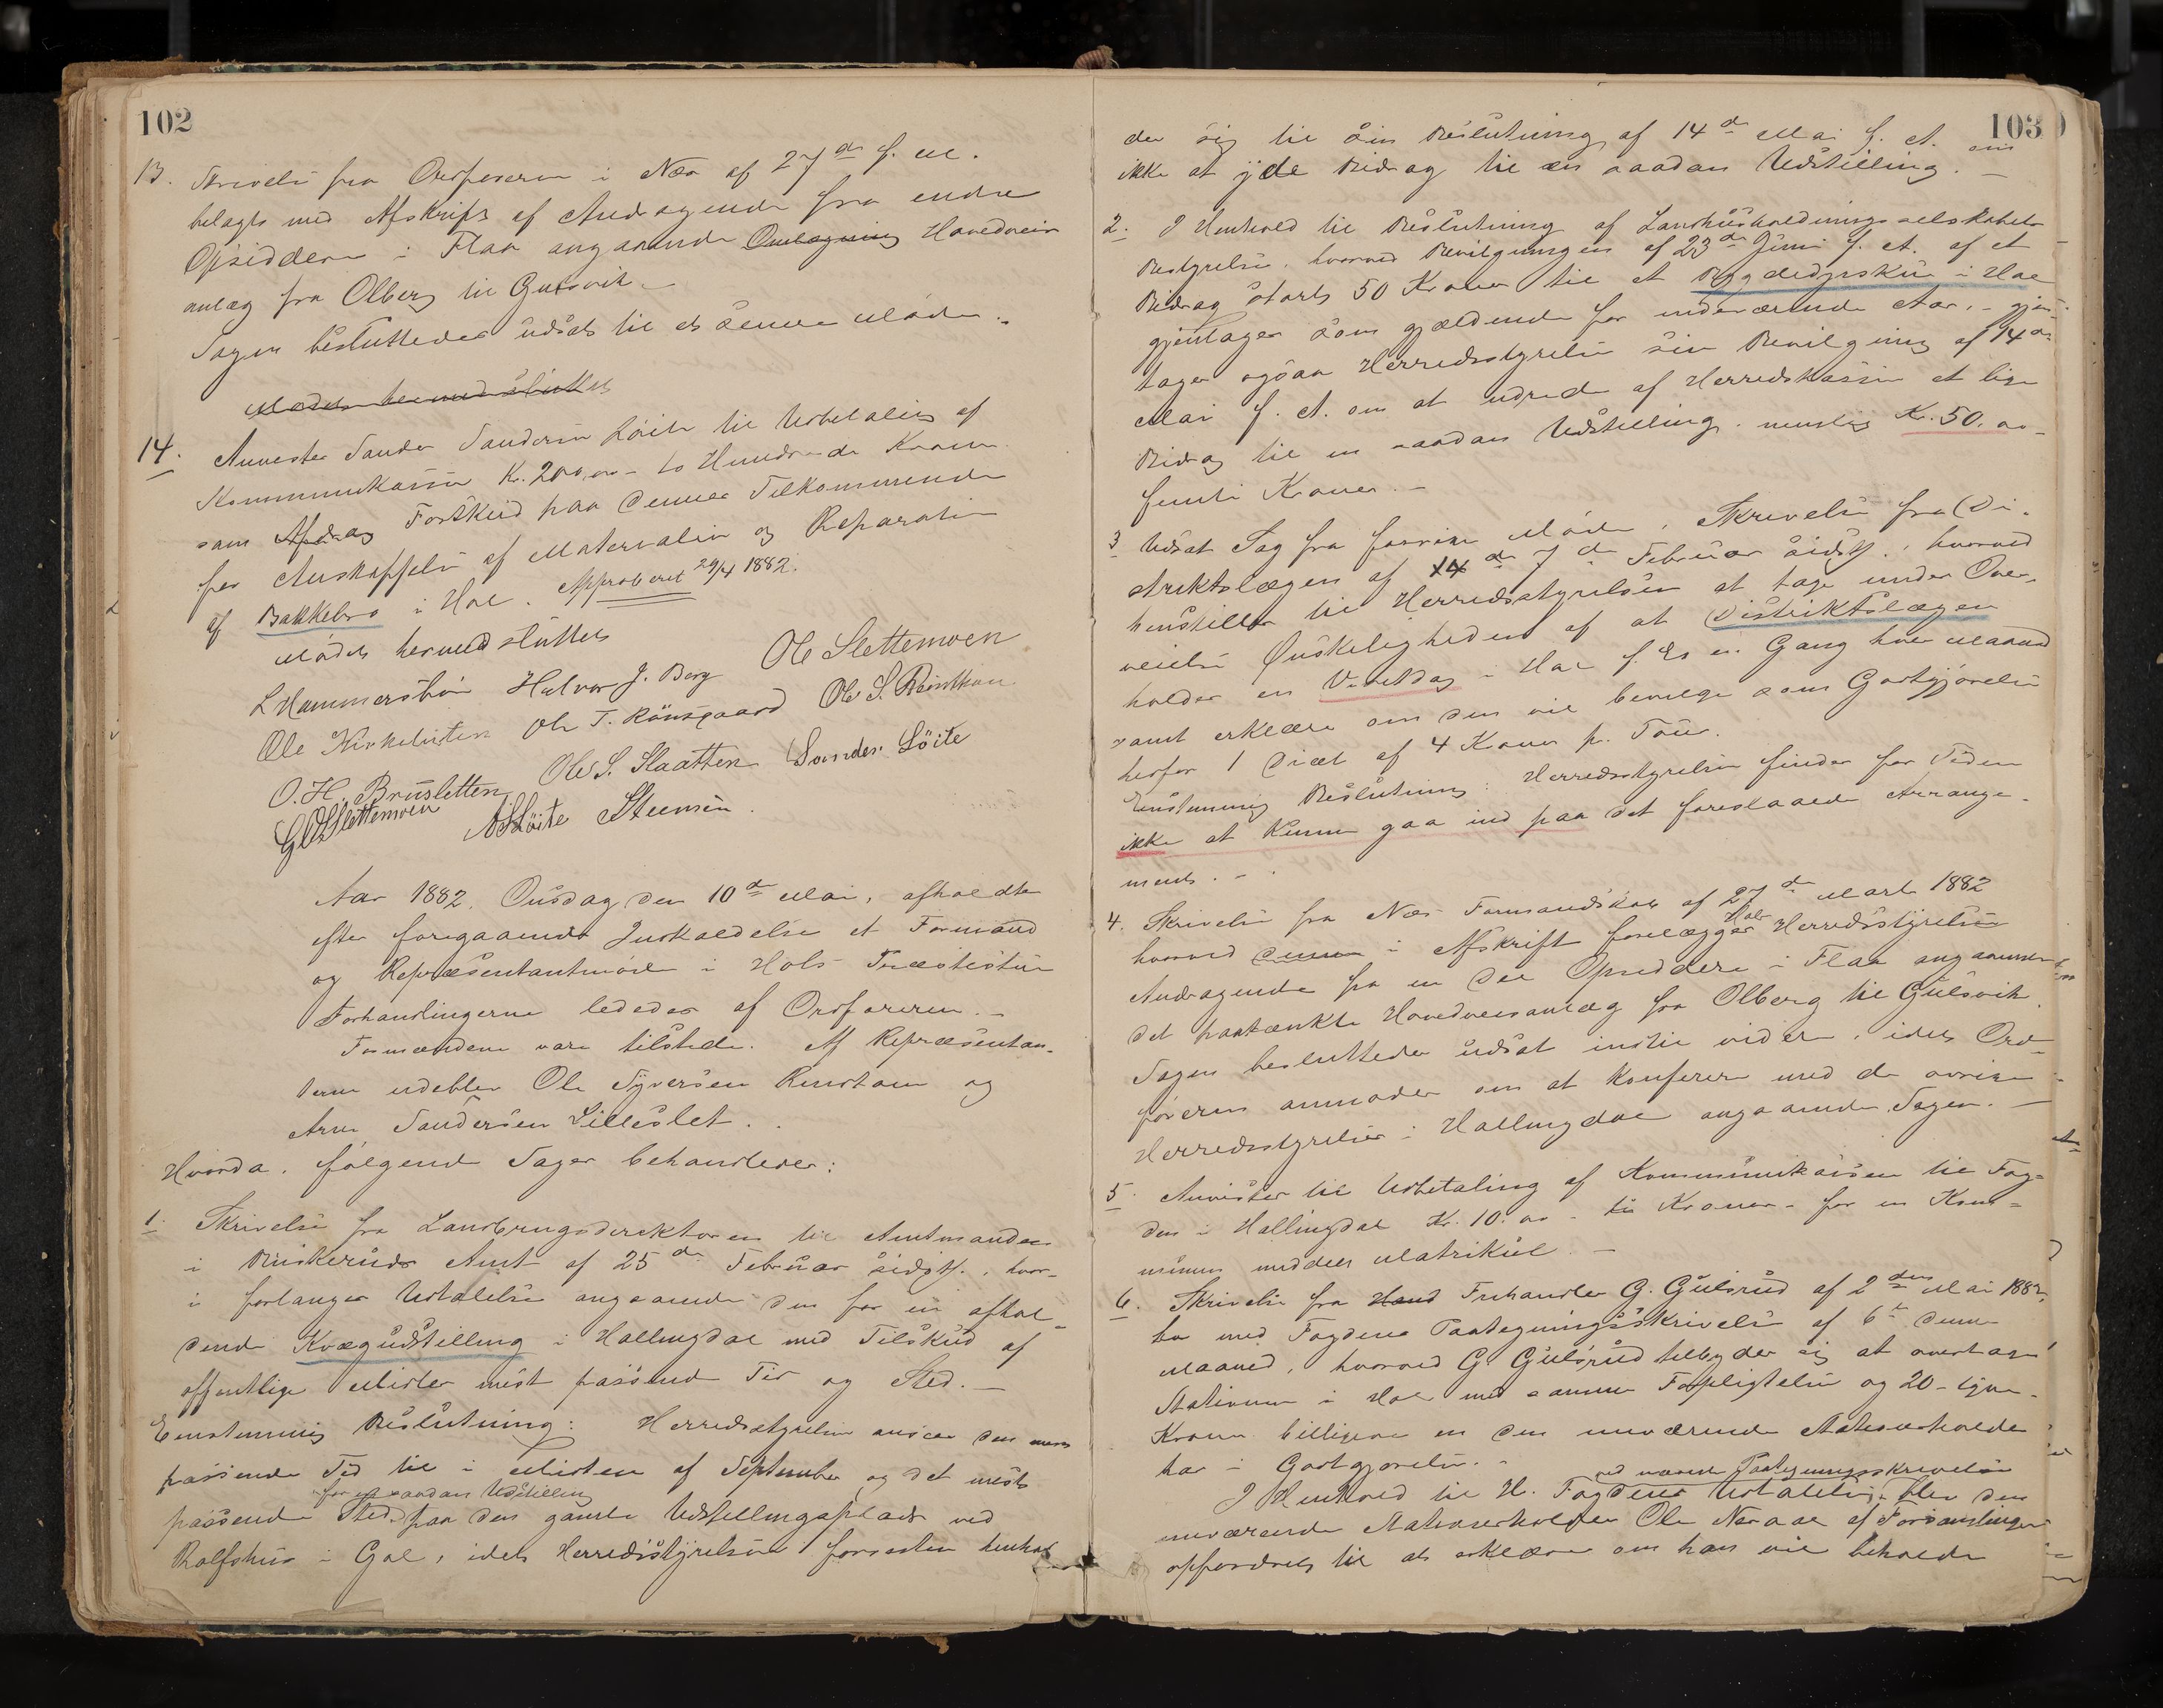 102
13. Skrivelse fra Ordføreren i Næs af 27de f. M.
belagte med Afskrift af Andragende fra endre
Opsiddere i Flaa angaaende Omlægning Hovedveis
anlæg fra Olberg til Gulsvik.
Sagen besluttedes udsat til et senere Møde.
Mødet hermed sluttet
14. Anvistes Sander Sandersen Löite til Udbetaling af
Kommunekassen Kr. 200,00 - to Hundrede Kroner
som Afdrag Forskud paa dennes Tilkommende
for Anskaffelse af Materialier og Reparation
af Bakkebro i Hol. Approberet 29/4 1882.
Mødet hermed sluttet
L Hammersbön Halvor J. Berg Ole Slettemoen
Ole Kirkebiten Ole T. Rönsgaard Ole S. Reinthon
O. H. Brusletten Ole S. Slaatten Sander Löite
G O Slettemoen A S Löite Steensen.
Aar 1882. Onsdag den 10de Mai, afholdtes
efter foregaaende Indkaldelse et Formand
og Repræsentantmøde i Hols Præstestue
Forhandlingerne lededes af Ordføreren.
Formændene vare tilstede. Af Repræsentan-
terne udeblev Ole Syversen Reinton og
Arne Sandersen Lilleslet.
Hvorda følgende Sager behandledes:
1. Skrivelse fra Landbrugsdirektøren til Amtmanden
i Buskeruds Amt af 25de Februar sidstl., hvor-
i forlanges Udtalelse angaaende den for en afhol-
dende Kvægudstilling i Hallingdal med Tilskud af
offentlige Midler mest passende Tid og Sted.
Eenstemmig Beslutning: Herredsstyrelsen anser den mest
passende Tid til i Midten af September og det mest
for en saadan Udstilling
passende Sted paa den gamle Udstillingsplads ved
Rolfshus i Gol, idet Herredsstyrelsen forresten henhol
103
der sig til sin Beslutning af 14de Mai f. A. om
ikke at yde Bidrag til en saadan Udstilling.
2. I Henhold til Beslutning af Landhusholdningsselskabets
Bestyrelse, hvorved Bevilgningen af 23de Juni f. A. af et
Bidrag stort 50 Kroner til et Bygdedyrskue i Hol
gjentages som gjældende for indeværende Aar, - gjen-
tager ogsaa Herredsstyrelsen sin Bevilgning af 14de
Mai f. A. om at udrede af Herredskassen et lige
Bidrag til en saadan Udstilling, nemlig Kr. 50.00
femti Kroner.
3 Udsat Sag fra forrige Møde. Skrivelse fra Di-
striktslægen af 14 de 7de Februar sidstl., hvorved
henstilles til Herredsstyrelsen at tage under Over-
veielse Ønskeligheden af at Distriktslægen
holder en Veiledag i Hol f. Ex en Gang hver Maaned
samt erklære om den vil bevilge som Godtgjørelse
herfor 1 Diæt af 4 Kroner pr. Tour.
Eenstemmig Beslutning: Herredsstyrelsen finder for Tiden
ikke at kunne gaa ind paa det foreslaaede Arrange-
ment.
4. Skrivelse fra Næs Formandskab af 27de Marts 1882
hvorved denne i Afskrift forelægger Hols Herredsstyrelse
Andragende fra en Del Opsiddere i Flaa angaaende
det paatænkte Hovedveisanlæg fra Olberg til Gulsvik.
Sagen besluttedes udsat indtil videre, idet Ord-
føreren anmodes om at konferere med de øvrige
Herredsstyrelser i Hallingdal angaaende Sagen.
5. Anvistes til Udbetaling af Kommunekassen til Fog-
den i Hallingdal Kr. 10.00 - ti Kroner - for en Kom-
munen meddelt Matrikul.
6. Skrivelse fra Hand Frihandler G. Gulsrud af 2den Mai 1882,
med Fogdens Paategningsskrivelse af 6te denne
Maaned, hvorved G. Gulsrud tilbyder sig at overtage
Stationen i Hol med samme Forpligtelse og 20 - tyve -
Kroner billigere en den nuværende Stationsholder
har i Godtgjørelse.
ved nævnte Paategningsskrivelse
I Henhold til H. Fogdens Udtalelse, blev den
nuværende Stationsholder Ole Neraal af Forsamlingen
opfordret til at erklære om han vil beholde